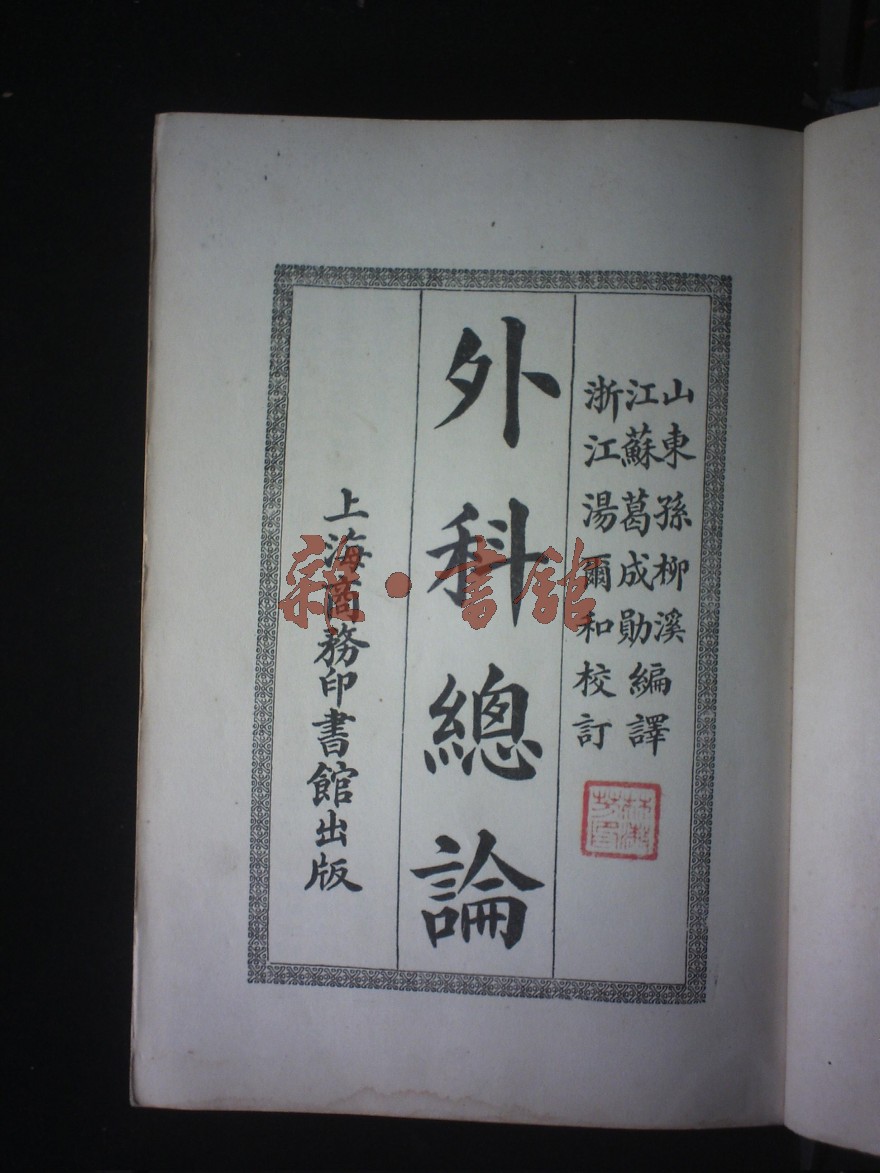 山東孫柳溪
江蘇葛成勛編譯
浙江湯爾和校訂
外科總論
上海商務印書館出版
雜·書館